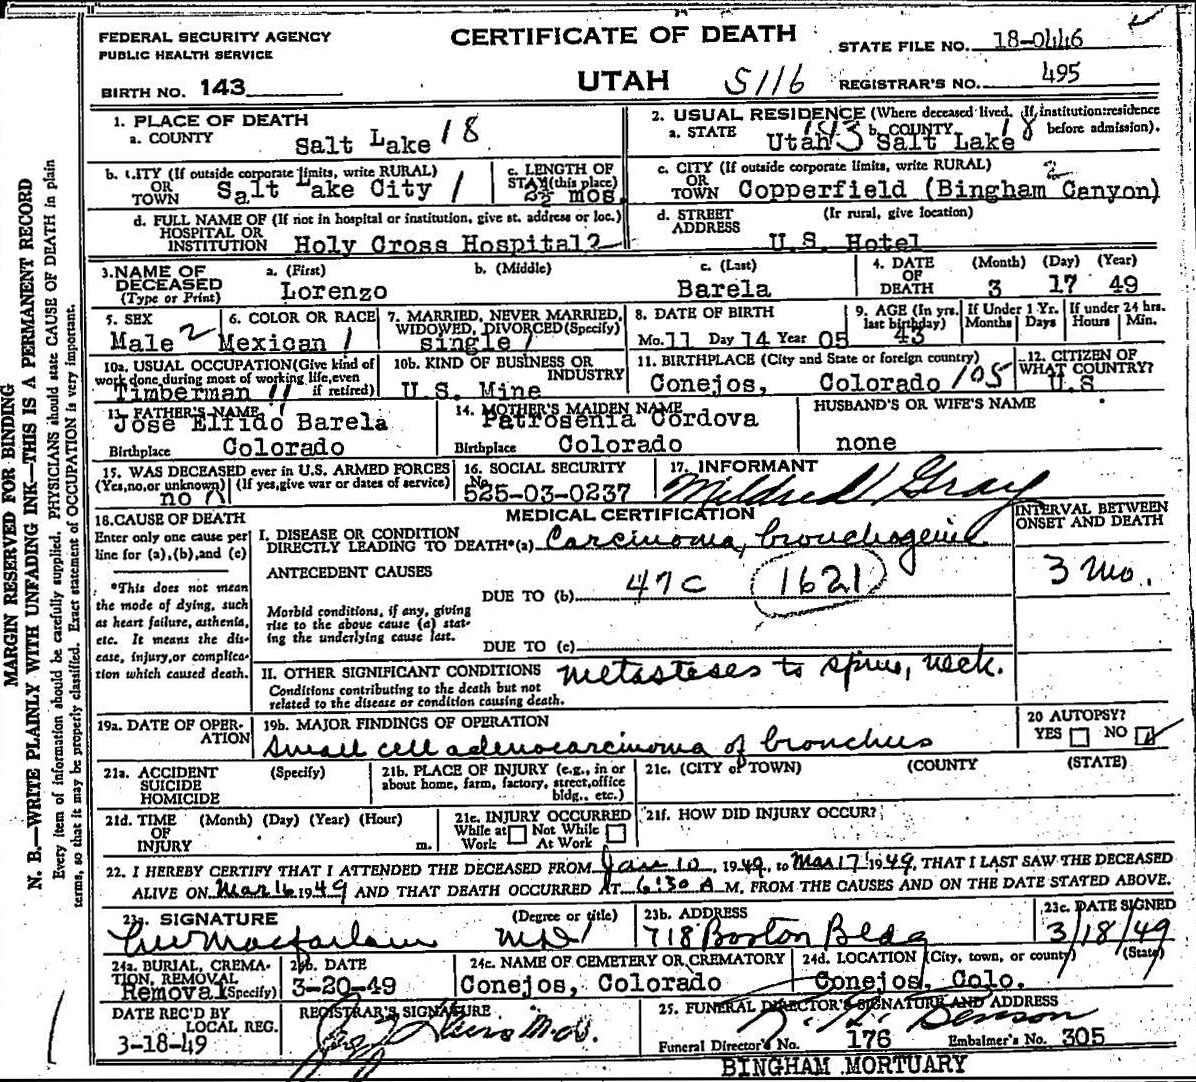 FEDERAL SECURITY AGENCY
PUBLIC HEALTH SERVICE
BIRTH NO. 143
CERTIFICATE OF DEATH
UTAH S116
STATE FILE NO. 18-0446
REGISTRAR'S NO. 495
1. PLACE OF DEATH
a. COUNTY Salt Lake 18
2. USUAL RESIDENCE (Where deceased lived. If institution: residence before admission).
a. STATE Utah b. COUNTY Salt Lake 18
b. CITY (If outside corporate limits, write RURAL) OR TOWN Salt Lake City 1
c. LENGTH OF STAY (this place) 2½ mos.
c. CITY (If outside corporate limits, write RURAL) OR TOWN Copperfield (Bingham Canyon) 2
d. FULL NAME OF (If not in hospital or institution, give st. address or loc.) HOSPITAL OR INSTITUTION Holy Cross Hospital 2
d. STREET ADDRESS (If rural, give location) U.S. Hotel
3. NAME OF DECEASED (Type or Print)
a. (First) Lorenzo
b. (Middle)
c. (Last) Barela
4. DATE OF DEATH (Month) (Day) (Year) 3 17 49
5. SEX Male 2
6. COLOR OR RACE Mexican 1
7. MARRIED, NEVER MARRIED, WIDOWED, DIVORCED (Specify) single 1
8. DATE OF BIRTH Mo. 11 Day 14 Year 05
9. AGE (In yrs. last birthday) 43
If Under 1 Yr. Months Days
If under 24 hrs. Hours Min.
10a. USUAL OCCUPATION (Give kind of work done, during most of working life, even if retired) Timberman 11
10b. KIND OF BUSINESS OR INDUSTRY U.S. Mine
11. BIRTHPLACE (City and State or foreign country) Conejos, Colorado 105
12. CITIZEN OF WHAT COUNTRY? U.S
13. FATHER'S NAME Jose Elfido Barela
Birthplace Colorado
14. MOTHER'S MAIDEN NAME Patrosenia Cordova
Birthplace Colorado
HUSBAND'S OR WIFE'S NAME
none
15. WAS DECEASED ever in U.S. ARMED FORCES
(Yes, no, or unknown) (If yes, give war or dates of service)
no
16. SOCIAL SECURITY No. 525-03-0237
17. INFORMANT
Mildred Gray
18. CAUSE OF DEATH
Enter only one cause per line for (a), (b), and (c)
*This does not mean the mode of dying, such as heart failure, asthenia, etc. It means the disease, injury, or complication which caused death.
MEDICAL CERTIFICATION
INTERVAL BETWEEN ONSET AND DEATH
I. DISEASE OR CONDITION DIRECTLY LEADING TO DEATH*(a) Carcinoma, bronchogenic
3 mo.
ANTECEDENT CAUSES
DUE TO (b) 47c 1621
Morbid conditions, if any, giving rise to the above cause (a) stating the underlying cause last.
DUE TO (c)
II. OTHER SIGNIFICANT CONDITIONS metasteses to spine, neck.
Conditions contributing to the death but not related to the disease or condition causing death.
19a. DATE OF OPERATION
19b. MAJOR FINDINGS OF OPERATION
Small cell adenocarcinoma of bronchus
20 AUTOPSY?
YES NO
21a. ACCIDENT SUICIDE HOMICIDE (Specify)
21b. PLACE OF INJURY (e.g., in or about home, farm, factory, street, office bldg., etc.)
21c. (CITY OR TOWN) (COUNTY) (STATE)
21d. TIME OF INJURY (Month) (Day) (Year) (Hour) m.
21e. INJURY OCCURRED
While at Work Not While At Work
21f. HOW DID INJURY OCCUR?
22. I HEREBY CERTIFY THAT I ATTENDED THE DECEASED FROM Jan 10, 1949, to Mar 17 1949, THAT I LAST SAW THE DECEASED
ALIVE ON Mar 16 1949 AND THAT DEATH OCCURRED AT 6:30 A M, FROM THE CAUSES AND ON THE DATE STATED ABOVE.
23a. SIGNATURE (Degree or title) Macfarlane MD
23b. ADDRESS 718 Boston Bldg
23c. DATE SIGNED 3/18/49
24a. BURIAL, CREMATION, REMOVAL (Specify) Removal
24b. DATE 3-20-49
24c. NAME OF CEMETERY OR CREMATORY Conejos, Colorado
24d. LOCATION (City, town, or county) (State) Conejos, Colo.
DATE REC'D BY LOCAL REG. 3-18-49
REGISTRAR'S SIGNATURE
25. FUNERAL DIRECTOR'S SIGNATURE AND ADDRESS
Benson
Funeral Director's No. 176 Embalmer's No. 305
BINGHAM MORTUARY
MARGIN RESERVED FOR BINDING
N. B.—WRITE PLAINLY WITH UNFADING INK—THIS IS A PERMANENT RECORD
Every item of information should be carefully supplied. PHYSICIANS should state CAUSE OF DEATH in plain
terms, so that it may be properly classified. Exact statement of OCCUPATION is very important.